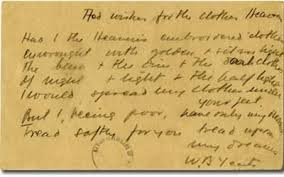 Aed wishes for the clothes Heaven
Had I the Heavens embroidered clothes
enwrought with golden + silver light
The blue + the dim + the dark clothes
Of night + light + the half light
I would spread my clothes under
your feet.
But I, being poor, have only my
Tread softly for you tread upon
my dreams
W B Yeats